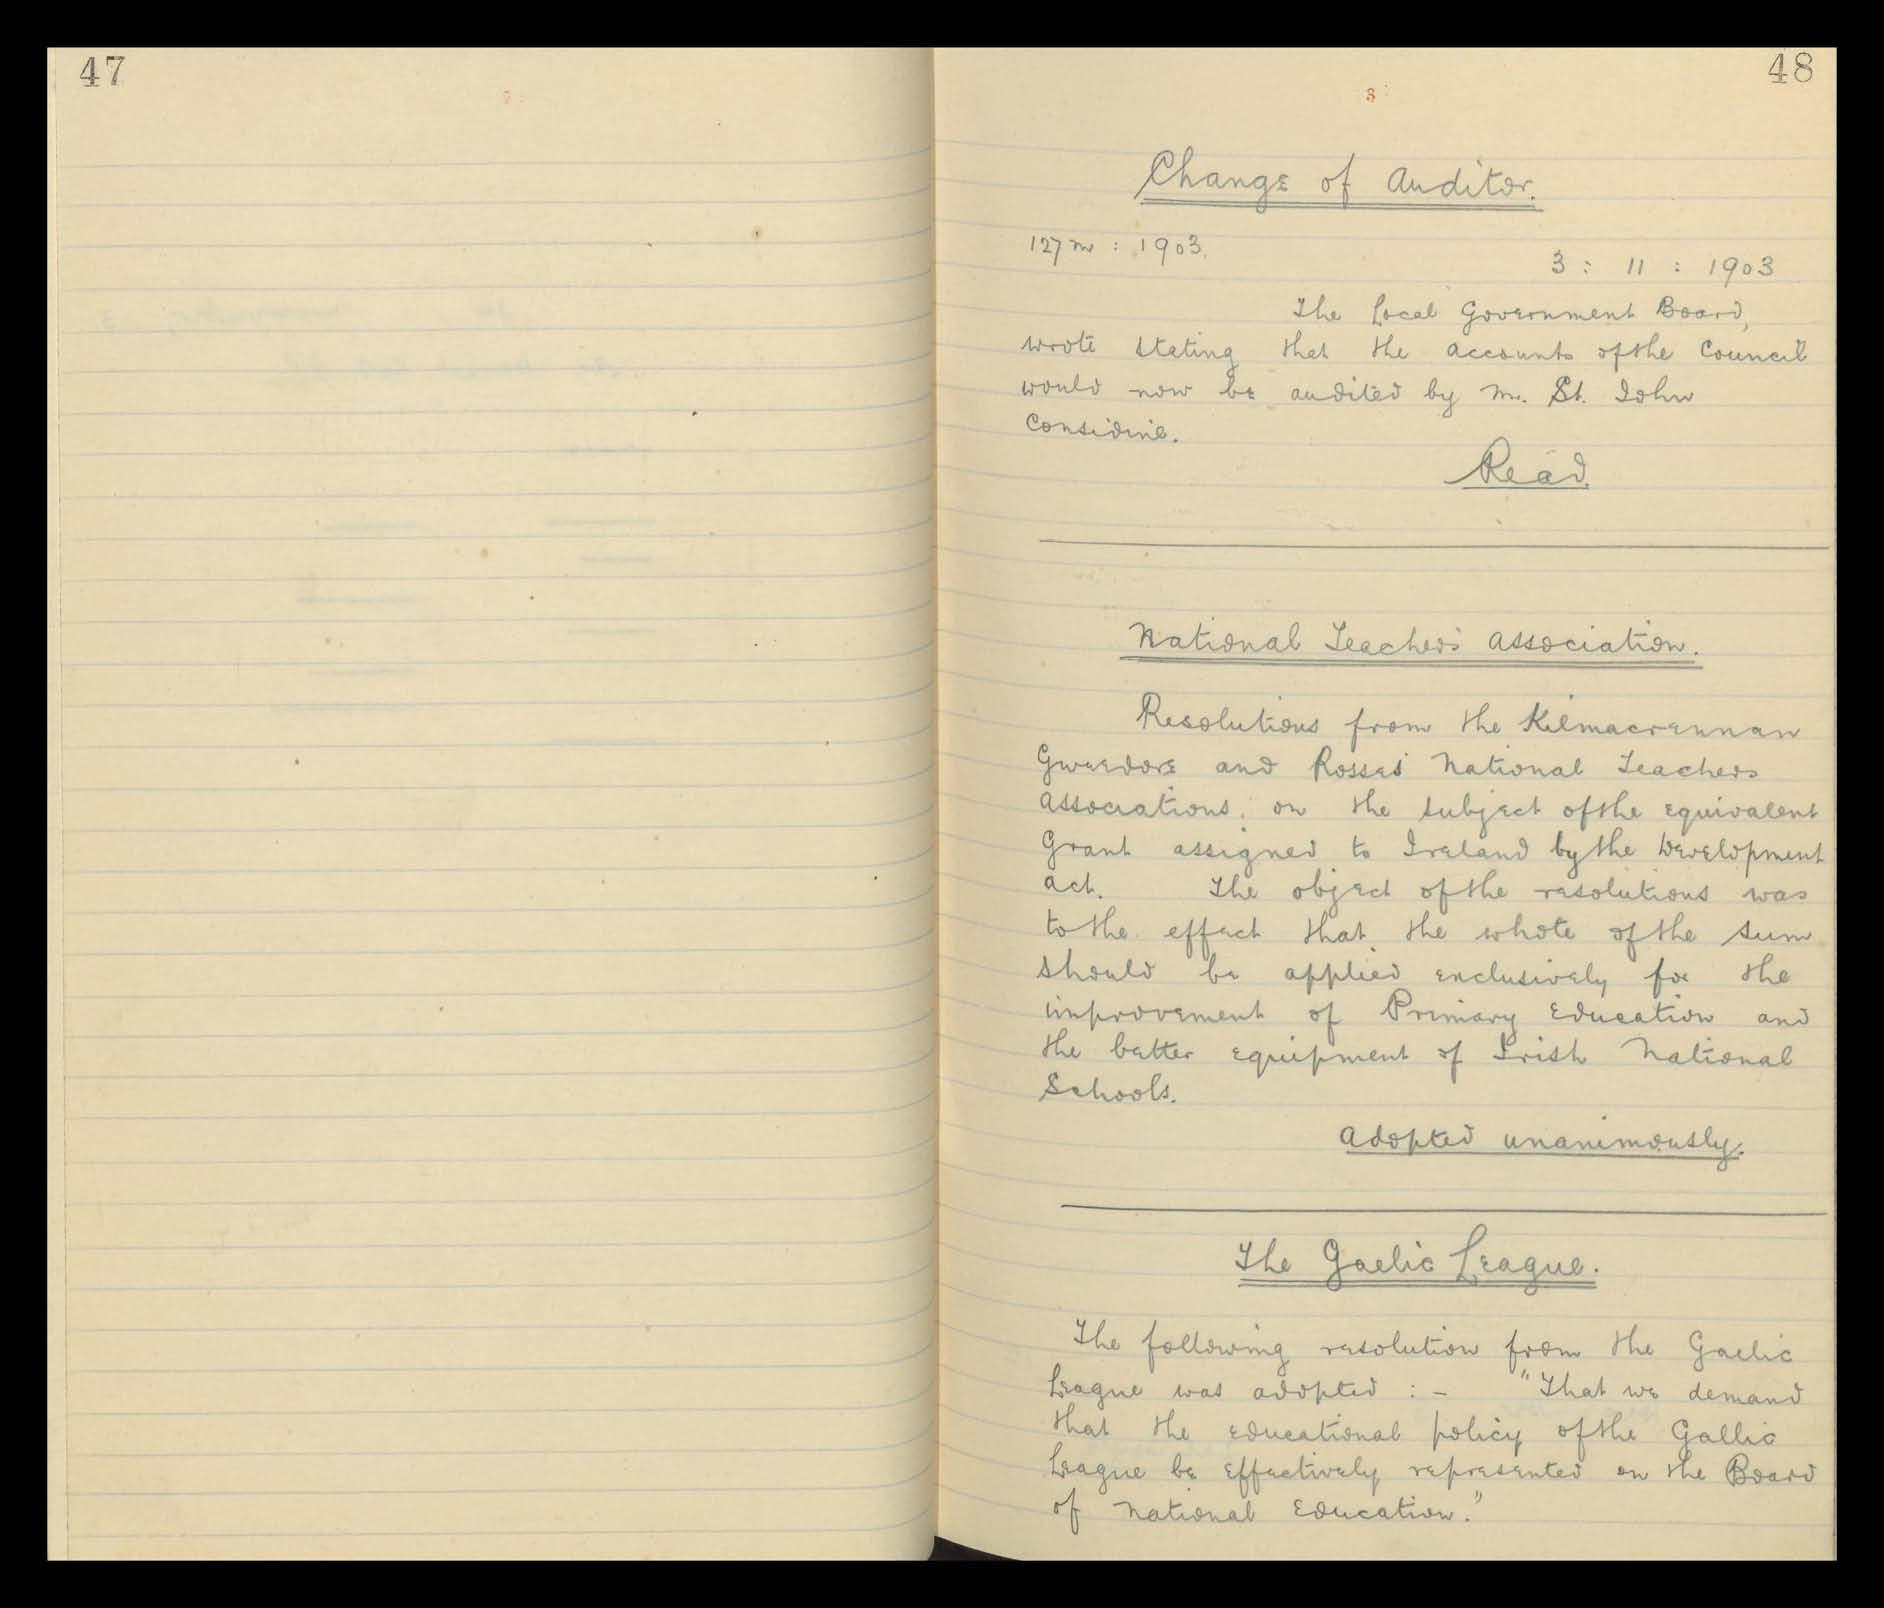 47
48
8
Change of Auditor.
127 m : 1903.
3 : 11 : 1903
The Local Government Board,
wrote stating that the accounts of the Council
would now be audited by Mr. St. John
Considine.
Read.
National Teachers' Association.
Resolutions from the Kilmacrennan
Gweedore and Rosses' National Teachers
Associations, on the subject of the equivalent
Grant assigned to Ireland by the Development
Act. The object of the resolutions was
to the effect that the whole of the sum
should be applied exclusively for the
improvement of Primary Education and
the better equipment of Irish National
Schools.
Adopted unanimously.
The Gaelic League.
The following resolution from the Gaelic
League was adopted : - "That we demand
that the educational policy of the Gallic
League be effectively represented on the Board
of National Education."